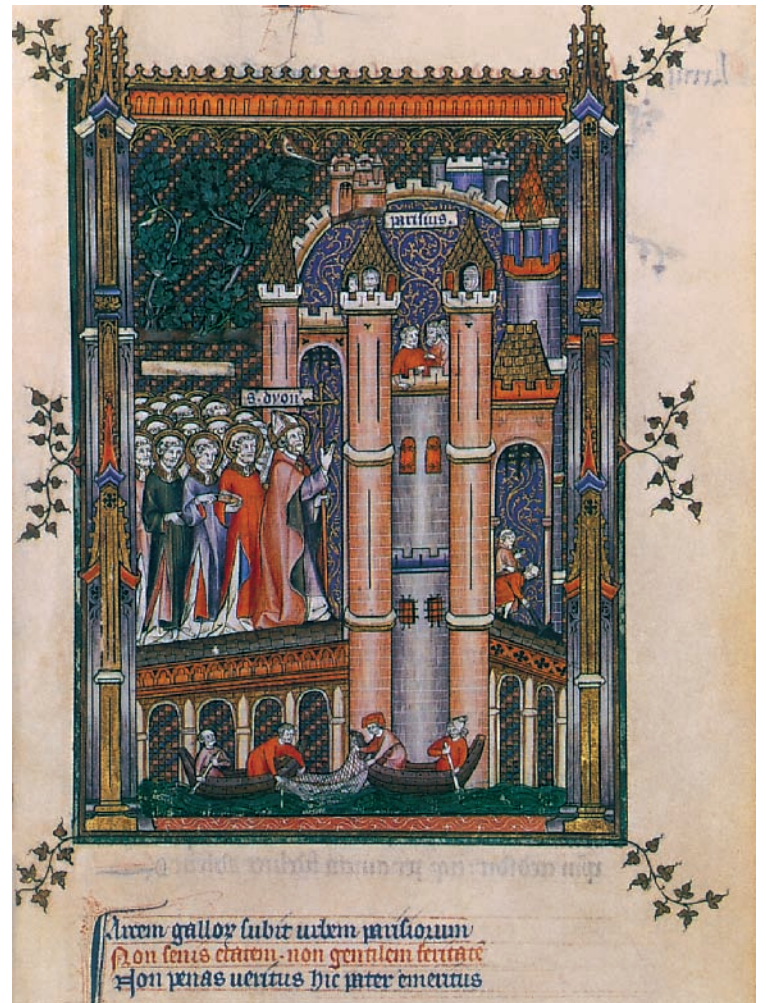 parisius.
s. dyon'
Arcem galloꝝ subit urbem parisiorum
Non senis etatem . non gentilem feritatē
Non penas ueritus hic pater emeritus